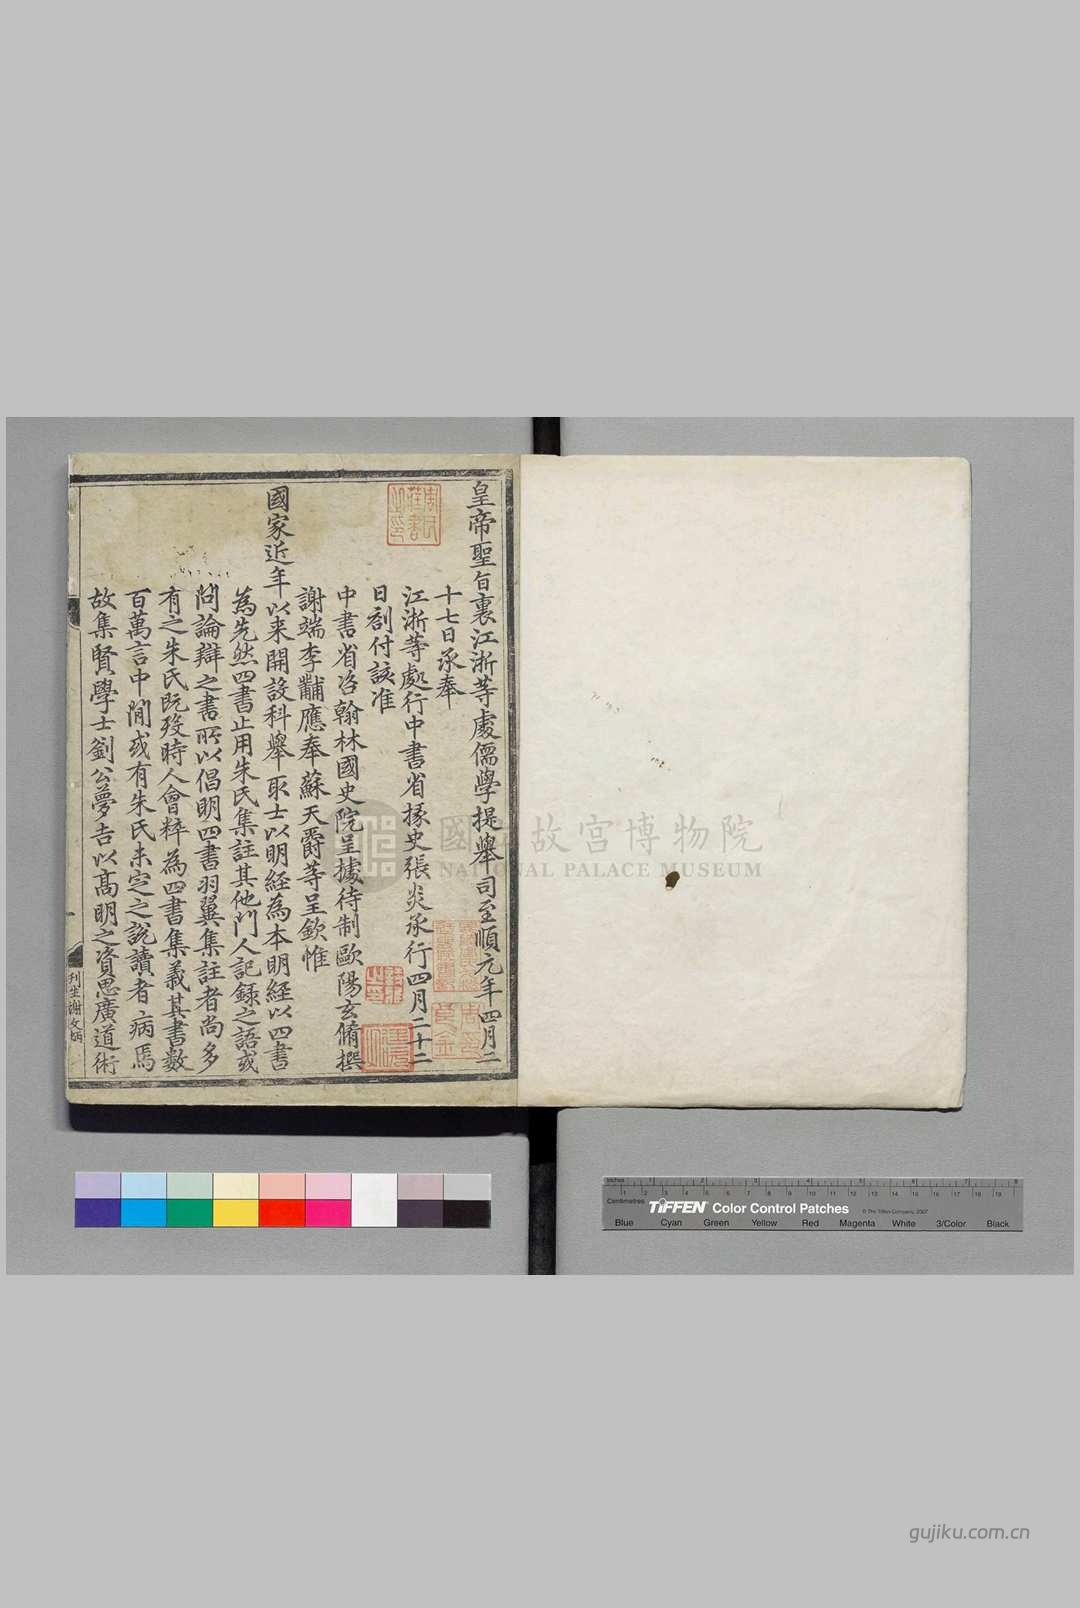 皇帝聖旨裏江浙等處儒學提舉司至順元年四月二
十七日承奉
江浙等處行中書省掾史張炎承行四月二十二
日劄付該准
中書省咨翰林國史院呈據待制歐陽玄脩撰
謝端李黼應奉蘇天爵等呈欽惟
國家近年以来開設科舉取士以明經為本明經以四書
為先然四書止用朱氏集註其他門人記録之語或
問論辯之書所以倡明四書羽翼集註者尚多
有之朱氏既歿時人會粹為四書集義其書數
百萬言中間或有朱氏未定之説讀者病焉
故集賢學士劉公夢吉以高明之資思廣道術
刋生謝文炳
國立故宮博物院
NATIONAL PALACE MUSEUM
Inches 1 2 3 4 5 6 7 8
Centimetres 1 2 3 4 5 6 7 8 9 10 11 12 13 14 15 16 17 18 19
TIFFEN Color Control Patches © The Tiffen Company, 2007
Blue Cyan Green Yellow Red Magenta White 3/Color Black
gujiku.com.cn